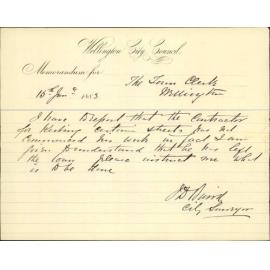 Wellington City Council.
Memorandum for
The Town Clerk
Wellington
15th Jany 1883
I have to report that the Contractor
for Kerbing Certain Streets has not
commenced his work in fact I am
given to understand that he has left
the Town Please instruct me what
is to be done
J D Baird
City Surveyor